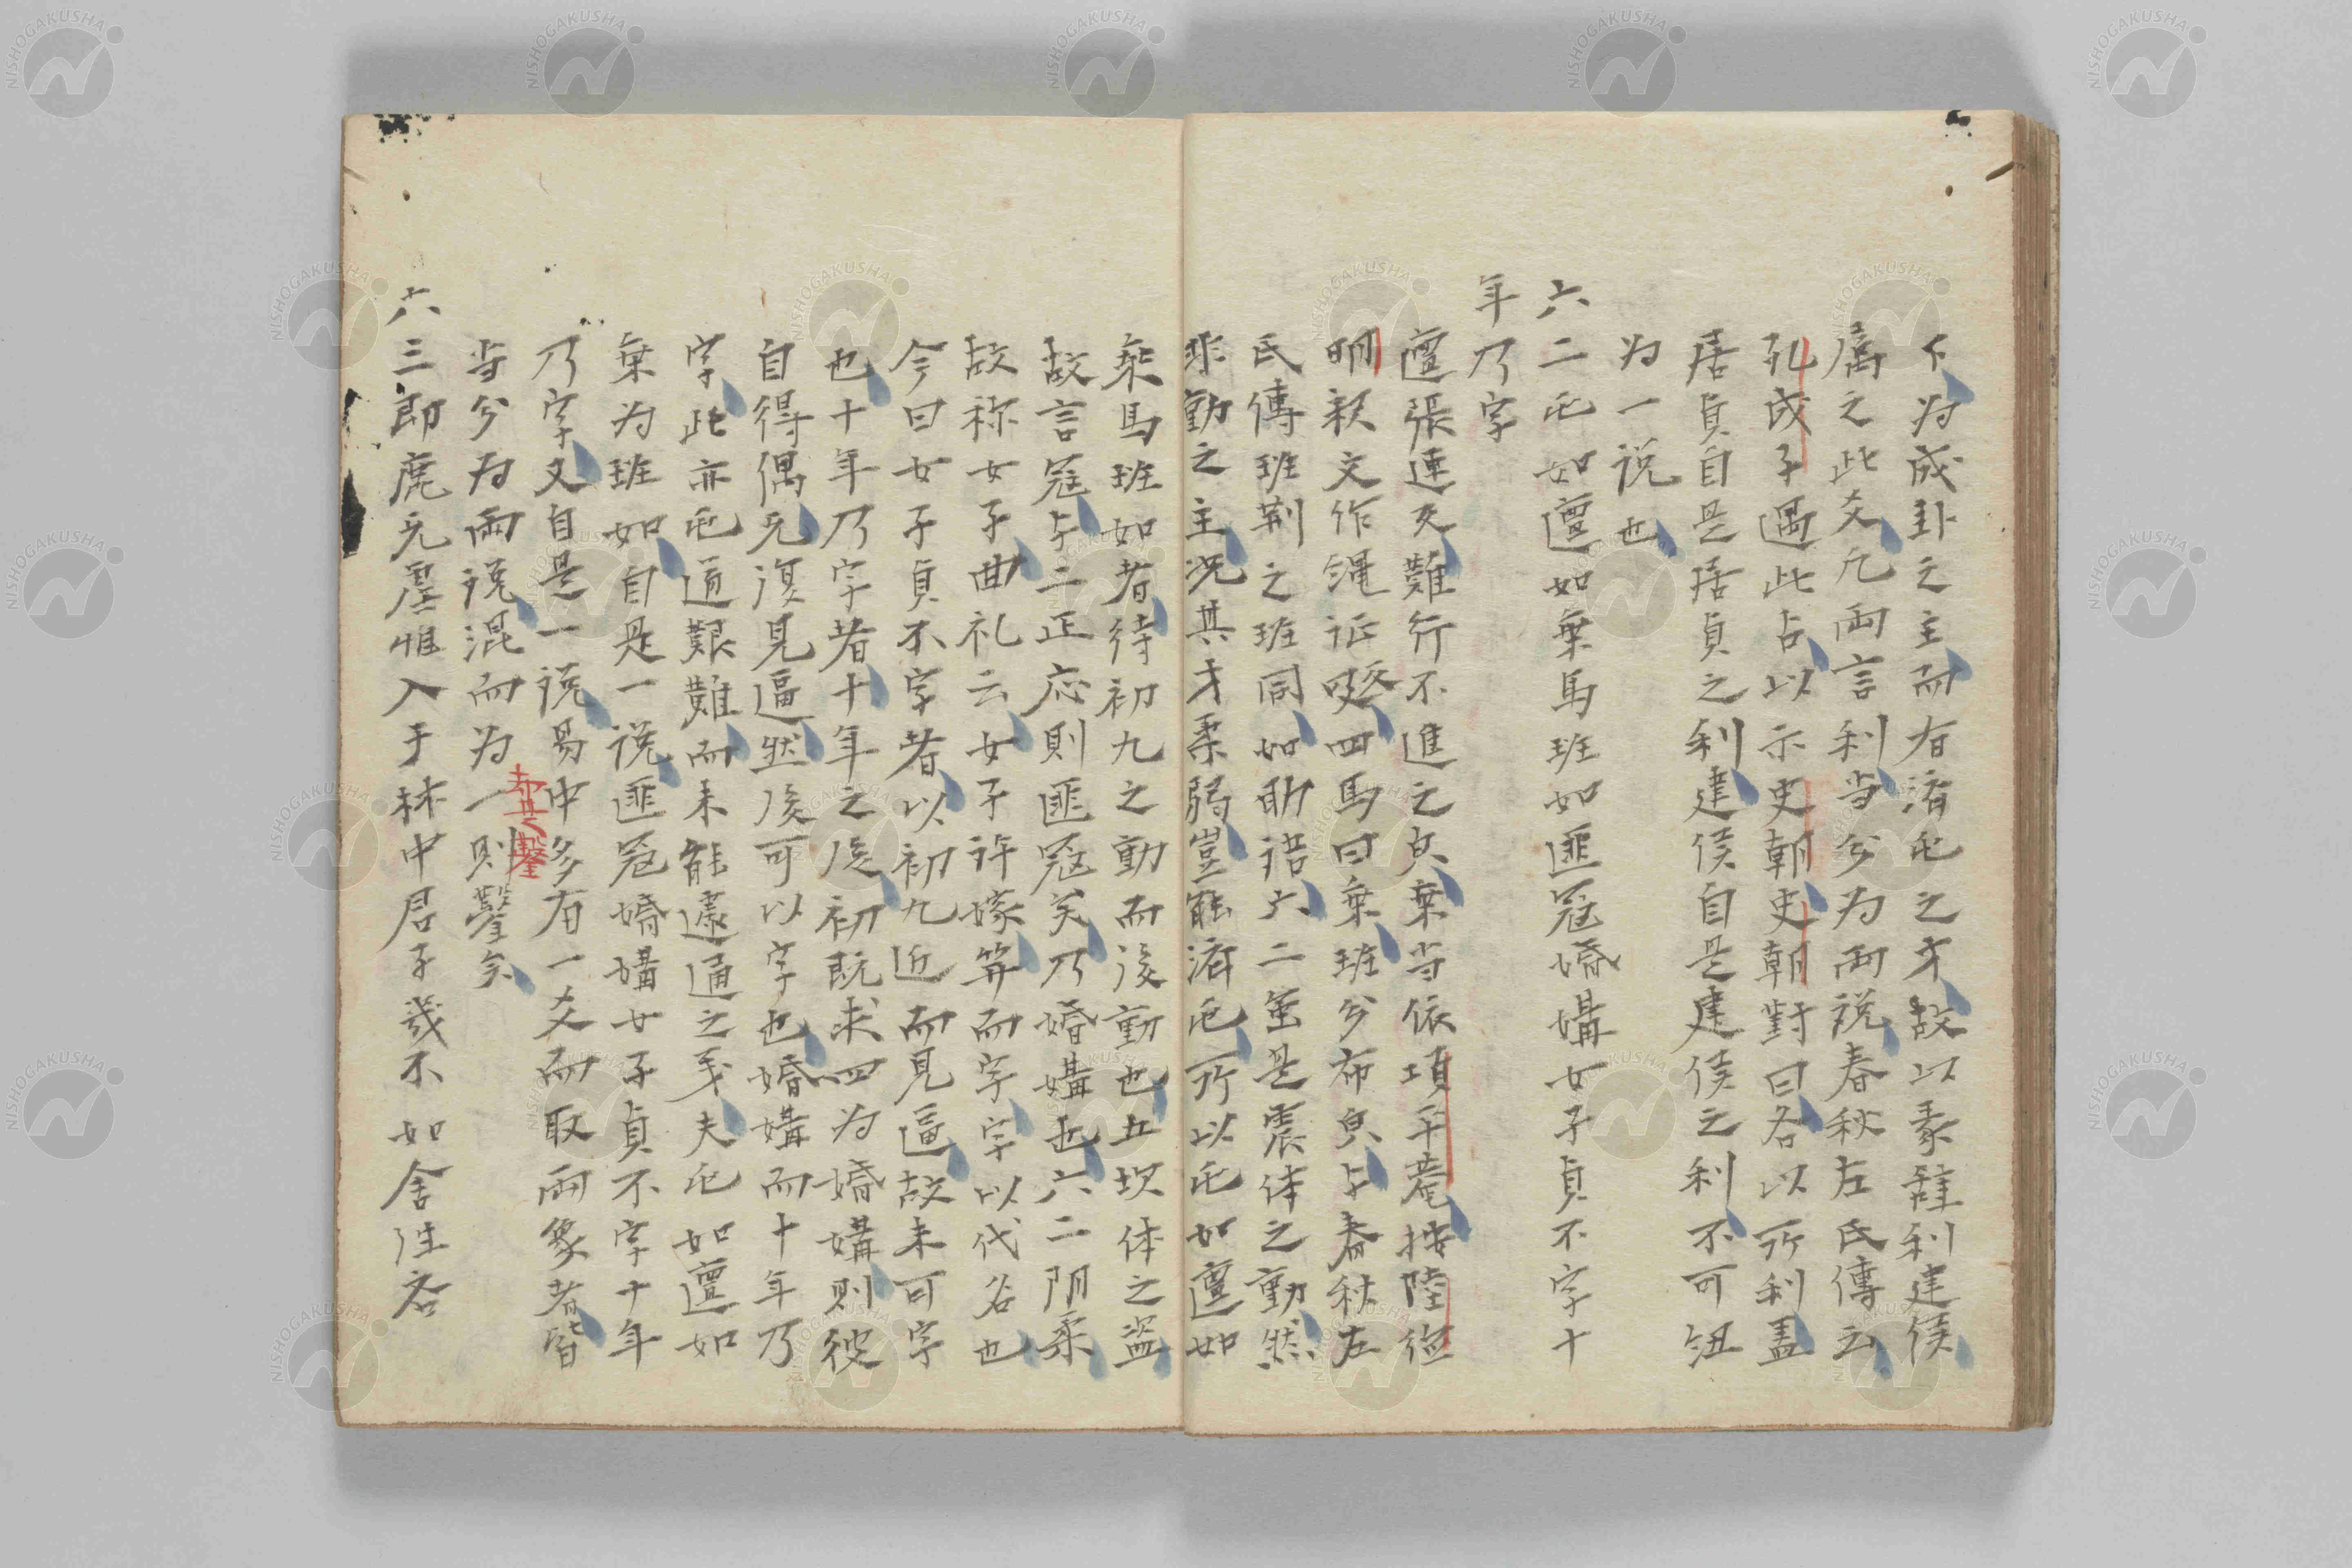 下为成卦之主而有濟屯之才故以彖辭利建侯
属之此爻凢両言利当分为両説春秋左氏傳云
孔成子遇此占以示史朝史朝對曰各以所利盖
居貞自是居貞之利建侯自是建侯之利不可泥
为一説也
六二屯如邅如乗馬班如匪冦婚媾女子貞不字十
年乃字
邅張連反難行不進之皃乗当依項平菴按陸德
明釈文作繩证反四馬曰乗班分布皃与春秋左
氏傳班荆之班同如助语六二虽是震体之動然
非動之主况其才柔弱豈能濟屯所以屯如邅如
乗馬班如者待初九之動而後動也五坎体之盗
故言冦与二正応則匪冦矣乃婚媾也六二阴柔
故称女子曲礼云女子许嫁笄而字字以代名也
今曰女子貞不字者以初九近而見逼故未可字
也十年乃字者十年之後初既求四为婚媾則彼
自得偶无復見逼然后可以字也婚媾而十年乃
字此亦屯邅艱難而未能遽通之义夫屯如邅如
乗为班如自是一説匪冦婚媾女子貞不字十年
乃字又自是一説易中多有一爻而取両象者皆
当分为両説混而为一則鑿矣
六三即鹿无虞惟入于林中君子幾不如舍往吝
NISHOGAKUSHA